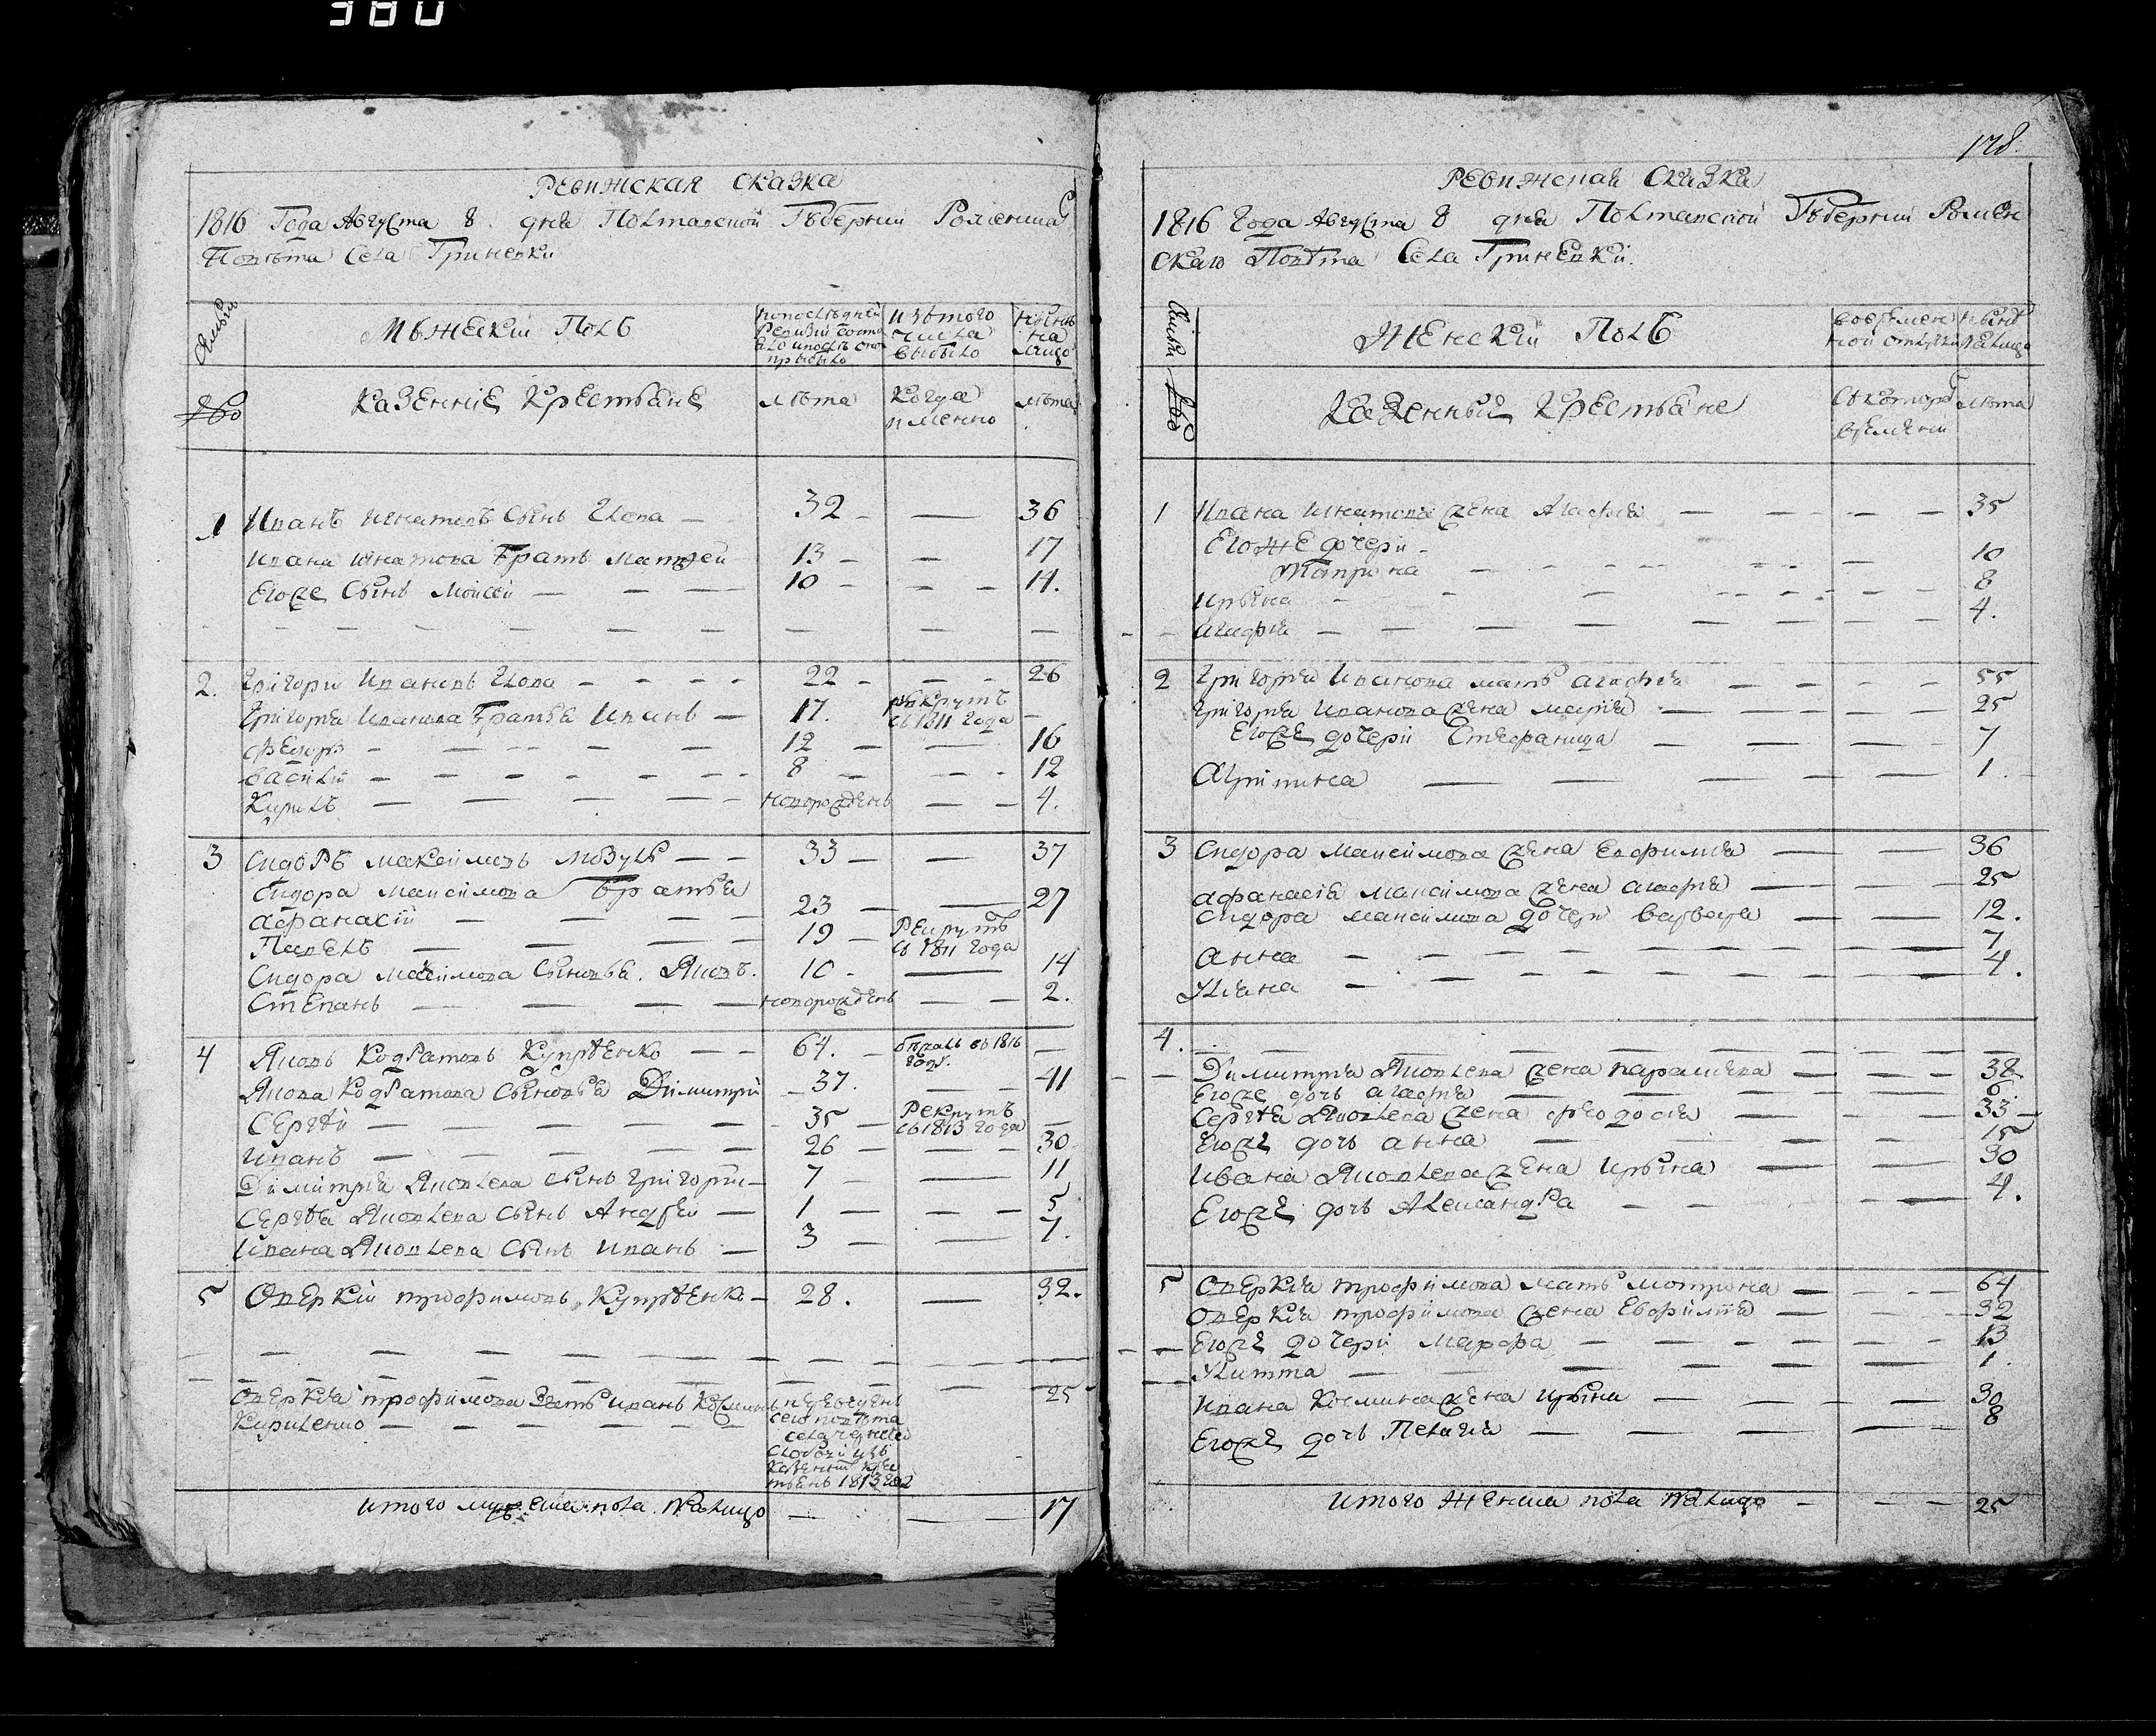 380
Ревижская Сказка
1816 Года Августа 8 дня Полтавской Гѵбернии Роменшаг
Повѣта Села Гриневки
Семьи
Мѵжескій Полъ
изъ того числа выбыло
ныне на лицо
Казенніе Крестьяне
лѣта
Когда именно
лѣта
1 Иванъ Игнатовъ Сынъ 32 — 36
Ивана Игнатова Братъ Матфей 13 — — 17
Егоже Сынъ Мойсей — — — 10 — — 14.
2. Григори Ивановъ — — — 22 — — 26
Григорія Иванова Братья Иванъ — 17. рѣкрутъ съ 1811 года —
Федоръ — — — 12 — — 16
Василій — — — 8 — — 12
Кирилъ — — — новорожденъ — — 4.
3 Сидоръ Максимовъ Мозуль — — 33 — — 37
Сидора Максимова Братья
Афанасій — — — 23 — — 27
Павелъ — — — 19 — Рекрутъ съ 1811 года
Сидора Максимова Сыновья. Яковъ. 10 — — 14
Степанъ — — — новорожденъ — — 2.
4 Яковъ Кодратовъ Купрѣенко — — 64. — въ 1816 годѵ. —
Якова Кодратова Сыновья Димитрій — 37. — — 41
Сергѣй — — — 35 — Рекрутъ съ 1813 года —
Иванъ — — — 26 — — 30
Димитрія Яковлева Сынъ Григорій — 7 — — 11
Сергѣя Яковлева Сынъ Андрей — 1 — — 5
Ивана Яковлева Сынъ Иванъ — 3 — — 7.
5 Оверкій Трофимовъ Купрѣенко — 28. — 32.
Оверкія Трофимова Зять Иванъ Козминъ 25
Кириленко — — — сего повѣта
1813 года
Итого мужеска пола Налицо — — 17
178.
Ревижская Сказка
1816 Года Августа 8 дня Полтавской Гѵберніи Ромен
скаго Повѣта Села Гриневки.
Семьи
Женскій Полъ
во времен ной отлучки
налицо
Казенныи Крестьяне
Съ котораго времени
лѣта
1 Ивана Игнатова жена Агафия — — 35
Егоже дочери
Мотрона — — — 10
Ирына — — — 8
Агафія — — — 4.
2 Григорія Иванова мать Агафия — — 55
Григорія Иванова жена Марія — — 25
Егоже дочери Стефанида — — 7
Агрипина — — — 1.
3 Сидора Максимова жена Евфимия — — 36
Афанасія Максимова жена Агафія — — 25
Сидора Максимова дочери Варвара — — 12.
Анна — — — 7
Уліана — — — 4.
4.
Димитрія Яковлева жена Параскева — — 38
Егоже дочь Агафія — — 6.
Сергѣя Яковлева жена Феодосия — — 33
Егоже дочь Анна — — 15
Ивана Яковлева жена Ирына — — 30
Егоже дочь Александра — — 4.
5 Оверкія Трофимова мать Мотрона — — 64
Оверкія Трофимова жена Евфимія — — 32
Егоже дочери Марфа — — 13
Улитта — — — 1.
Ивана Козмина жена Ирына — — 30
Егоже дочь Пелагия — — 8
Итого Женска пола Налицо — — 25